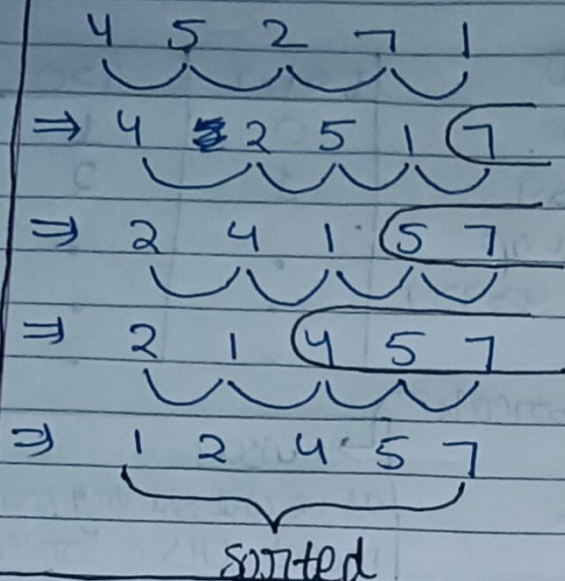 4 5 2 7 1
⇒ 4 2 5 1 7
⇒ 2 4 1 5 7
⇒ 2 1 4 5 7
⇒ 1 2 4 5 7
sorted